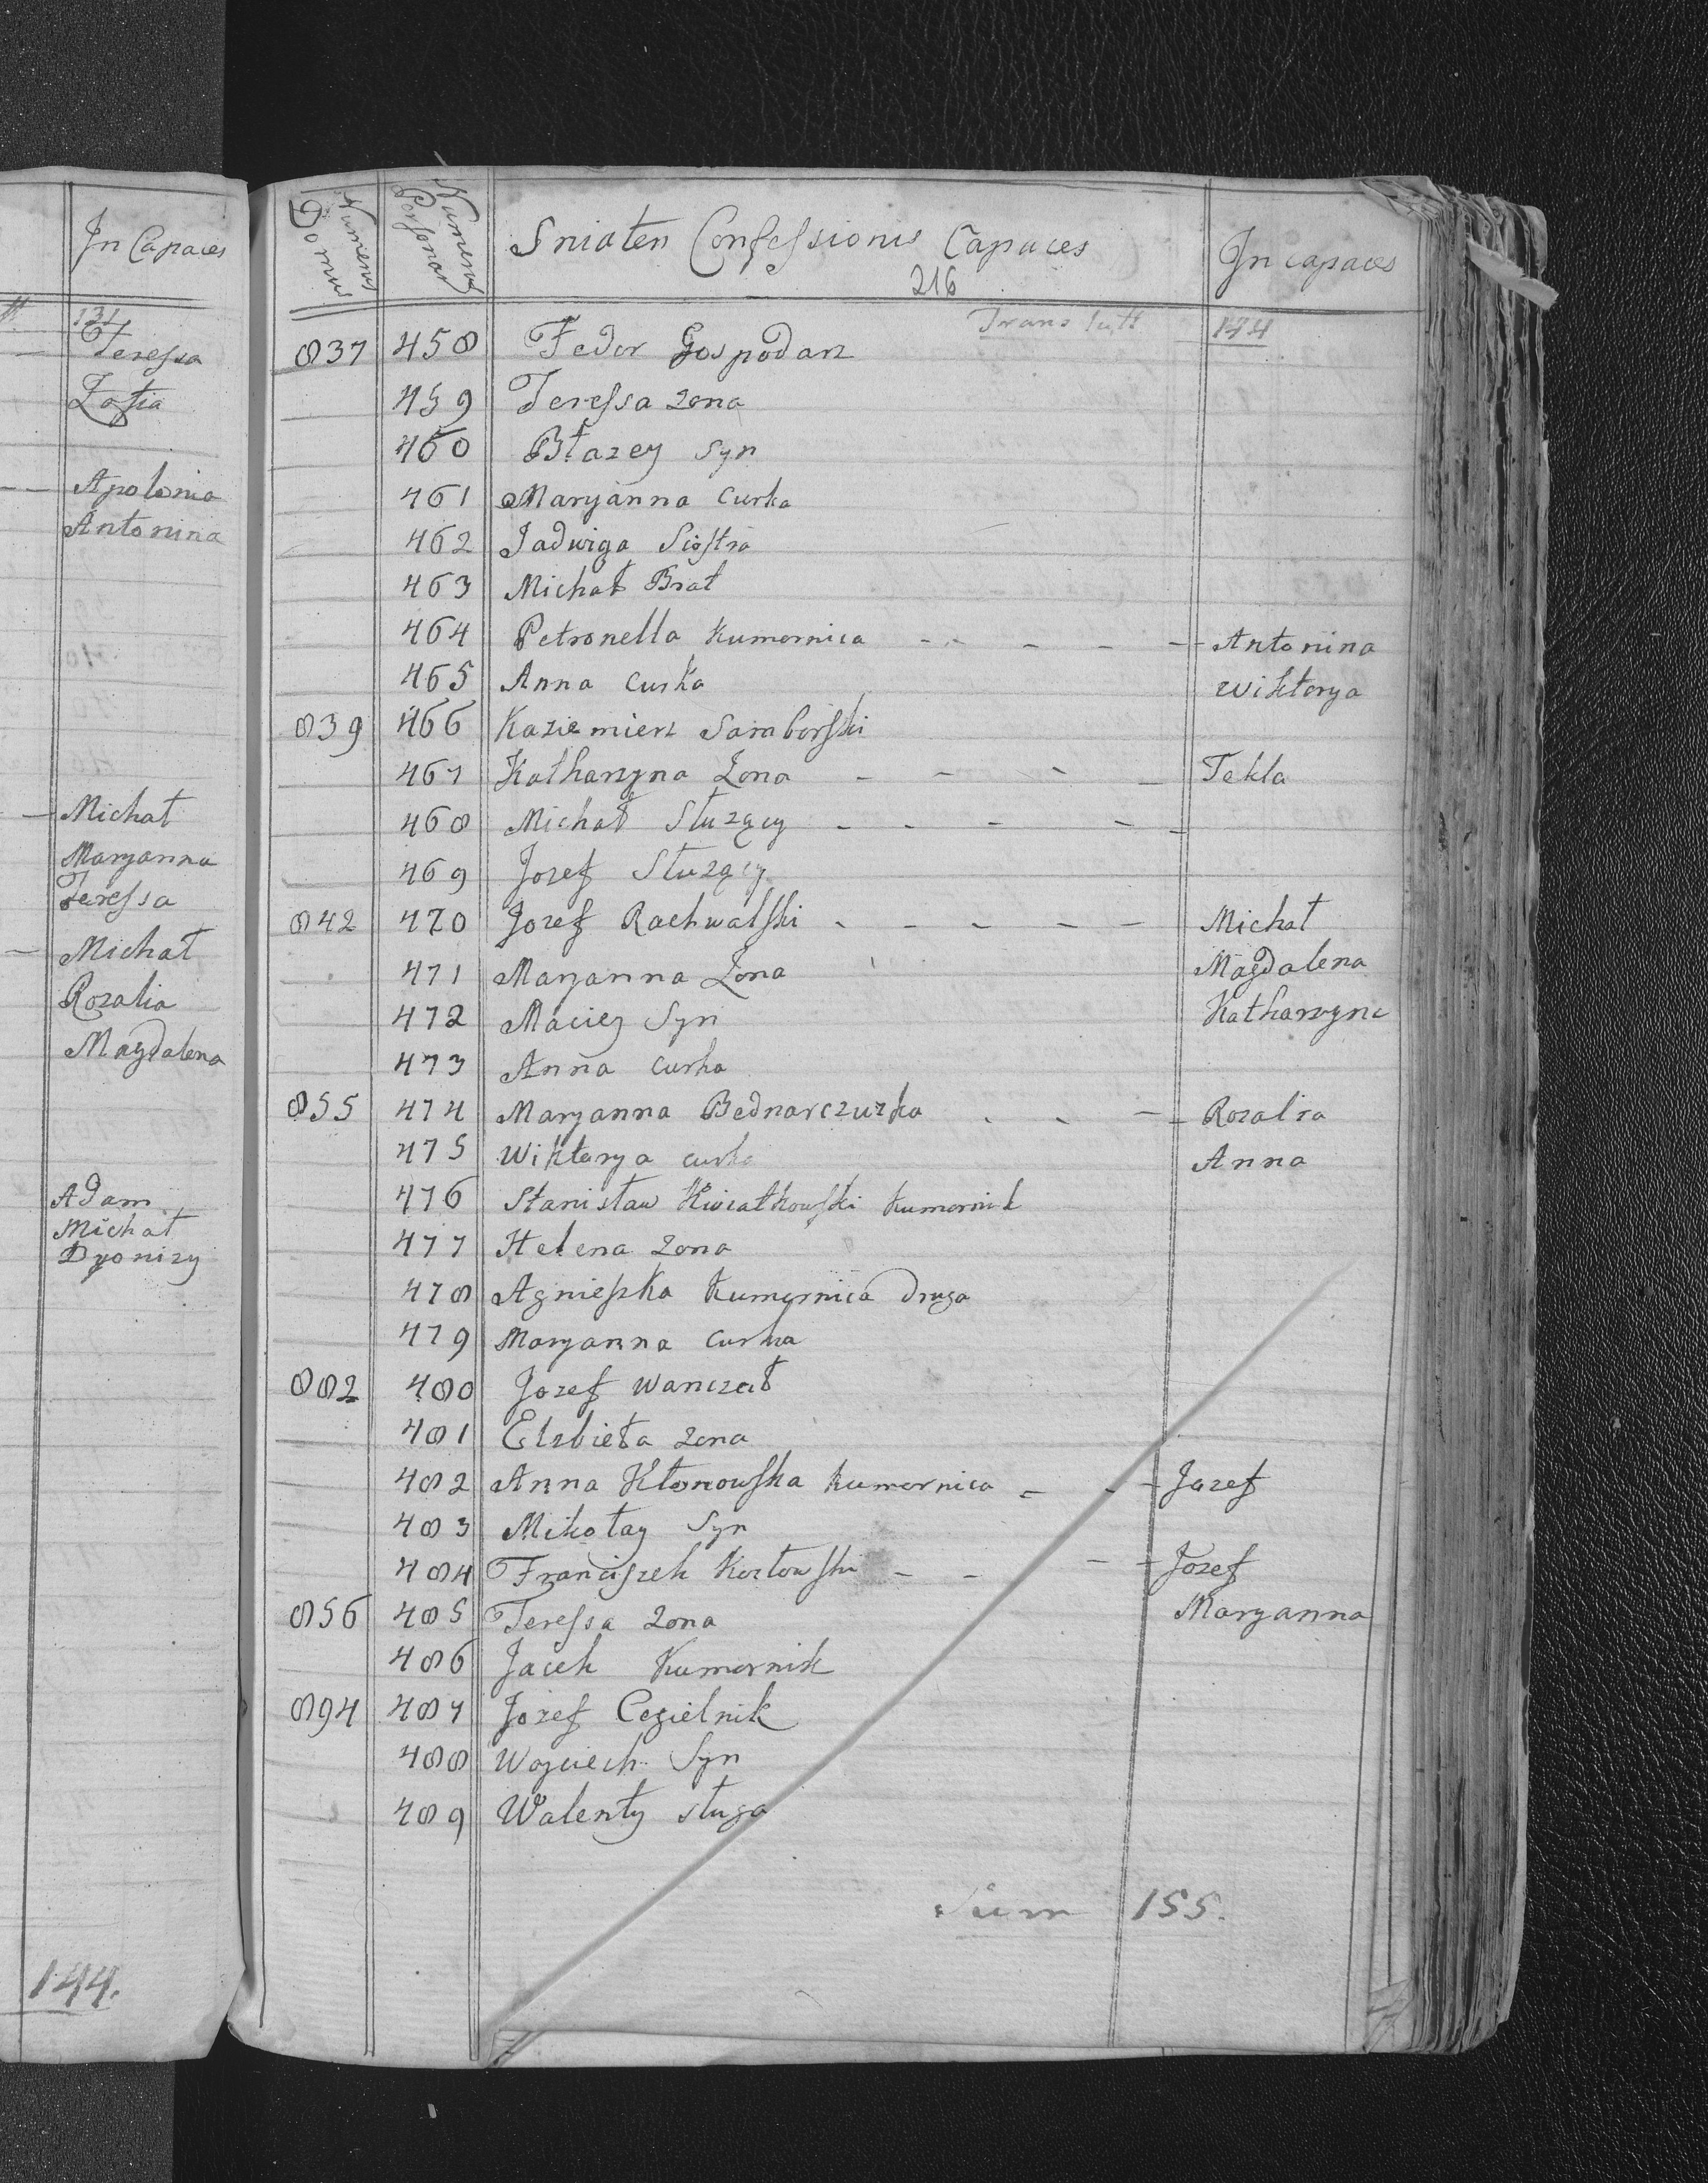 In Capaces
131
Teressa
Zofia
Apolonia
Antonina
Michał
Maryanna
Teressa
Michał
Rozalia
Magdalena
Adam
Michał
Dyonizy
144.
Numerus Domus
Numerus Personar
Sniaten Confessionis Capaces
In capaces
216
Trans
144
837 458 Fedor Gospodarz
459 Teressa zona
460 Błazey Syn
461 Maryanna Curka
462 Jadwiga Siostra
463 Michał Brat
464 Petronella Kumornica - - - - - Antonina
465 Anna Curka Wiktorya
839 466 Kaziemierz Samborski
467 Katharzyna Zona - - - - Tekla
468 Michał Słuzący - - - - -
469 Jozef Słuzący
842 470 Jozef Rachwalski - - - - - Michał
471 Maryanna Zona Magdalena
472 Maciey Syn Katharzyna
473 Anna curka
855 474 Maryanna Bednarczuzka - - - Rozalia
475 Wiktorya curka Anna
476 Stanisław Kwiatkowski Kumornik
477 Helena zona
478 Agnieszka Kumornica druga
479 Maryanna Curka
882 480 Jozef Wanczał
481 Elzbieta zona
482 Anna Kłonowska Kumornica - - - Jozef
483 Mikołay Syn
484 Franciszek Kozłowski - - - - Jozef
856 485 Teressa zona Maryanna
486 Jacek Kumornik
894 487 Jozef Cegielnik
488 Woyciech Syn
489 Walenty sługa
Sum 155.